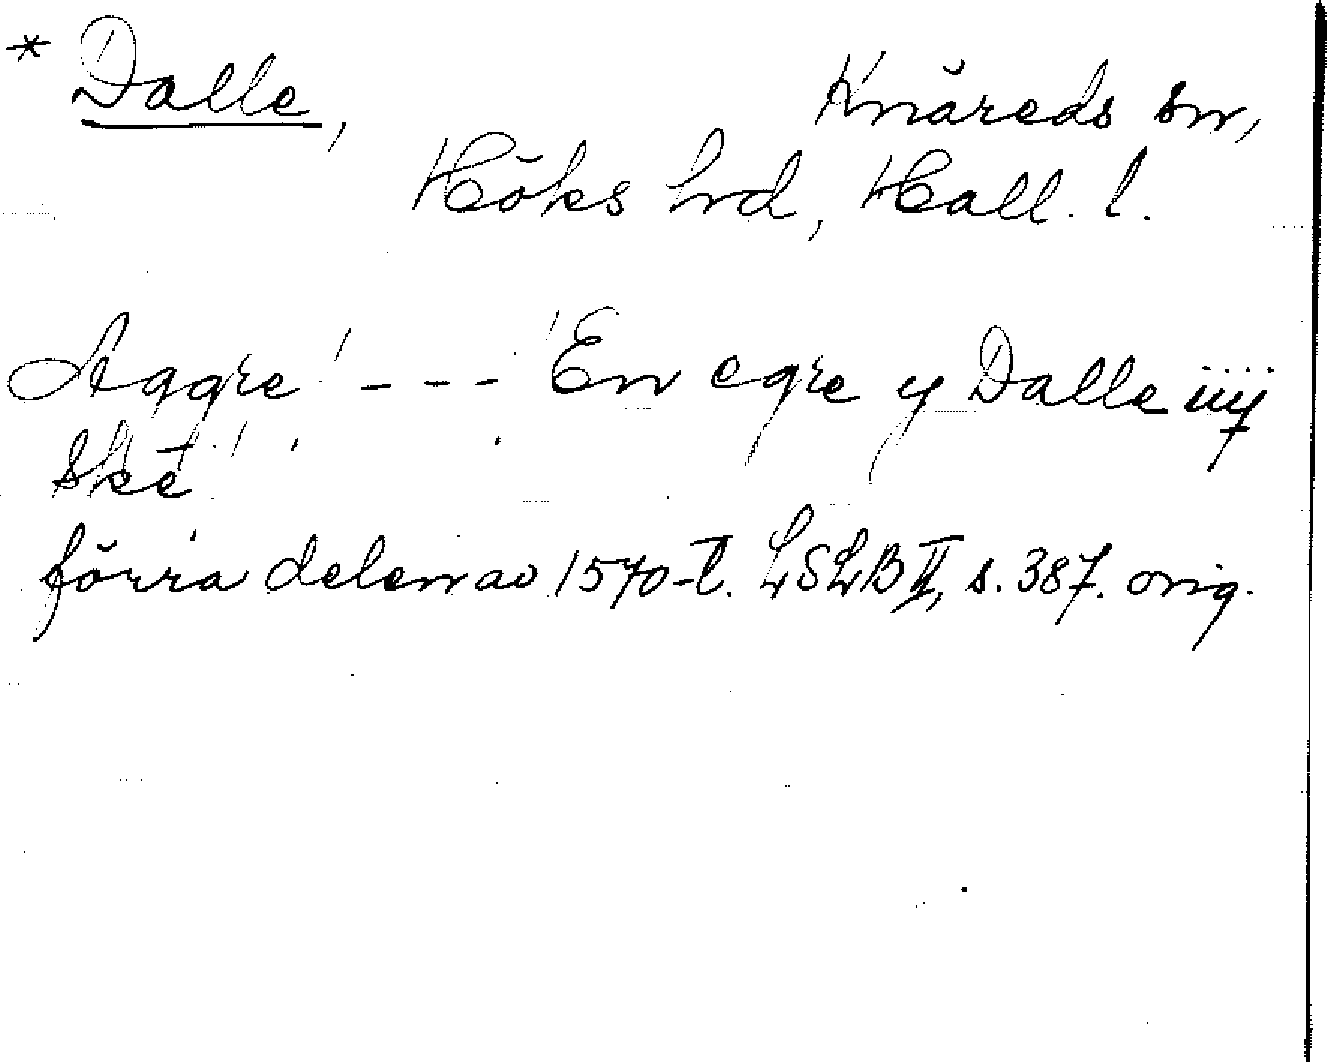 * Dalle, Knäreds sn,
Höks hrd, Hall. l.
Aggre' --- 'En egre y Dalle iiij
Ske'
förra delen av 1570-t. LSLB II, s. 387. orig.